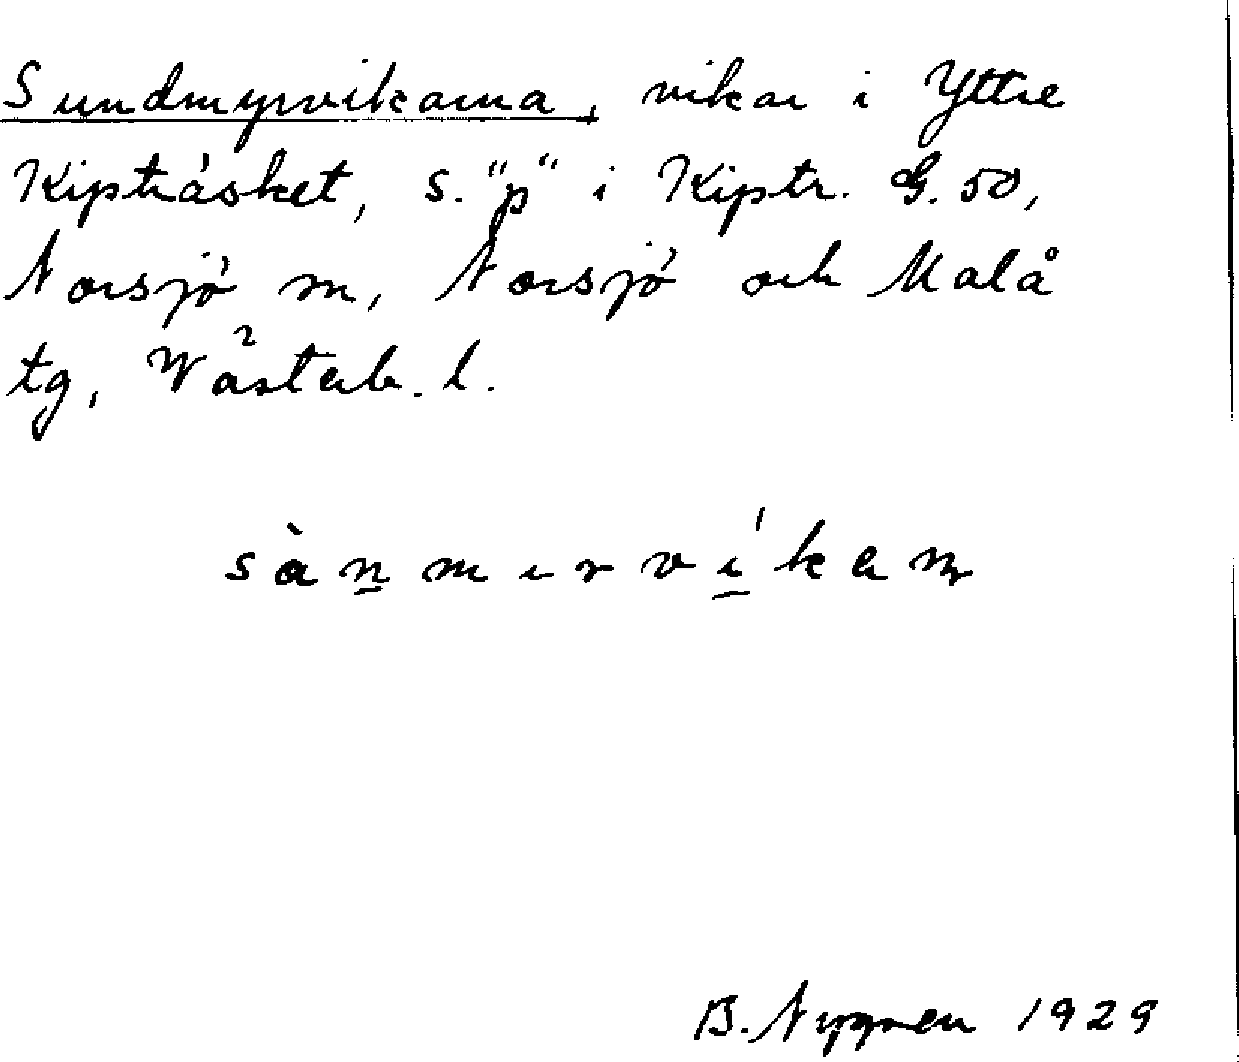 Sundmyrvikarna, vikar i Yttre
Kipträsket, s. "p" i Kiptr. G. 50,
Norsjö m, Norsjö och Malå
tg, Västerb. l.
sànmırvíkan
B. Nygren 1929